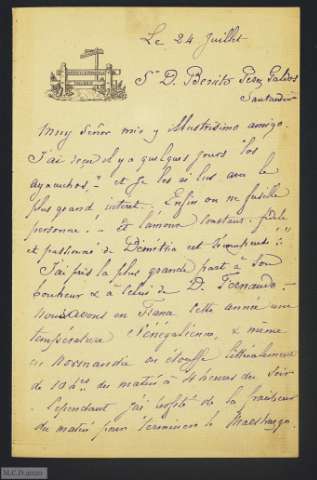 Le 24 Juillet
Sr D. Benito Perez Galdos
Santander
Muy Señor mio y illustrisimo amigo.
J'ai reçu il y a quelques jours "los
ayacuchos," et je les ai lus avec le
plus grand intérêt. Enfin on ne fusille
personne. Et l'amour constant, fidèle
et passionné de Demetria est
J'ai pris la plus grande part à son
bonheur & à celui de D. Fernando.
Nous avons en France cette année une
température Sénégalienne, & même
en Normandie on étouffe littéralement
de 10 hres du matin à 4 heures du soir
. Cependant j'ai profité de la fraîcheur
du matin pour terminer le Maestrazgo.